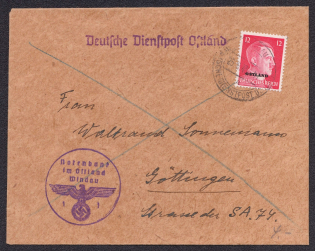 Deutsche Dienstpost Ostland
12 12
OSTLAND
Frau
Waltraud Sonnemann
Göttingen
Strasse der SA. 74.
Hafenkapt
im Ostland
Windau